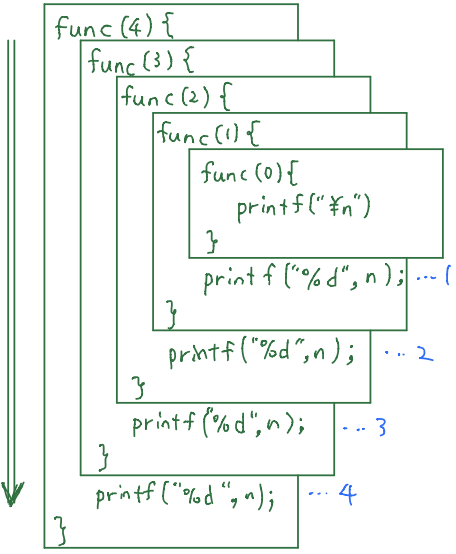 func(4){
func(3){
func(2){
func(1){
func(0){
printf("¥n")
}
printf("%d", n); …1
}
printf("%d", n); …2
}
printf("%d", n); …3
}
printf("%d", n); …4
}